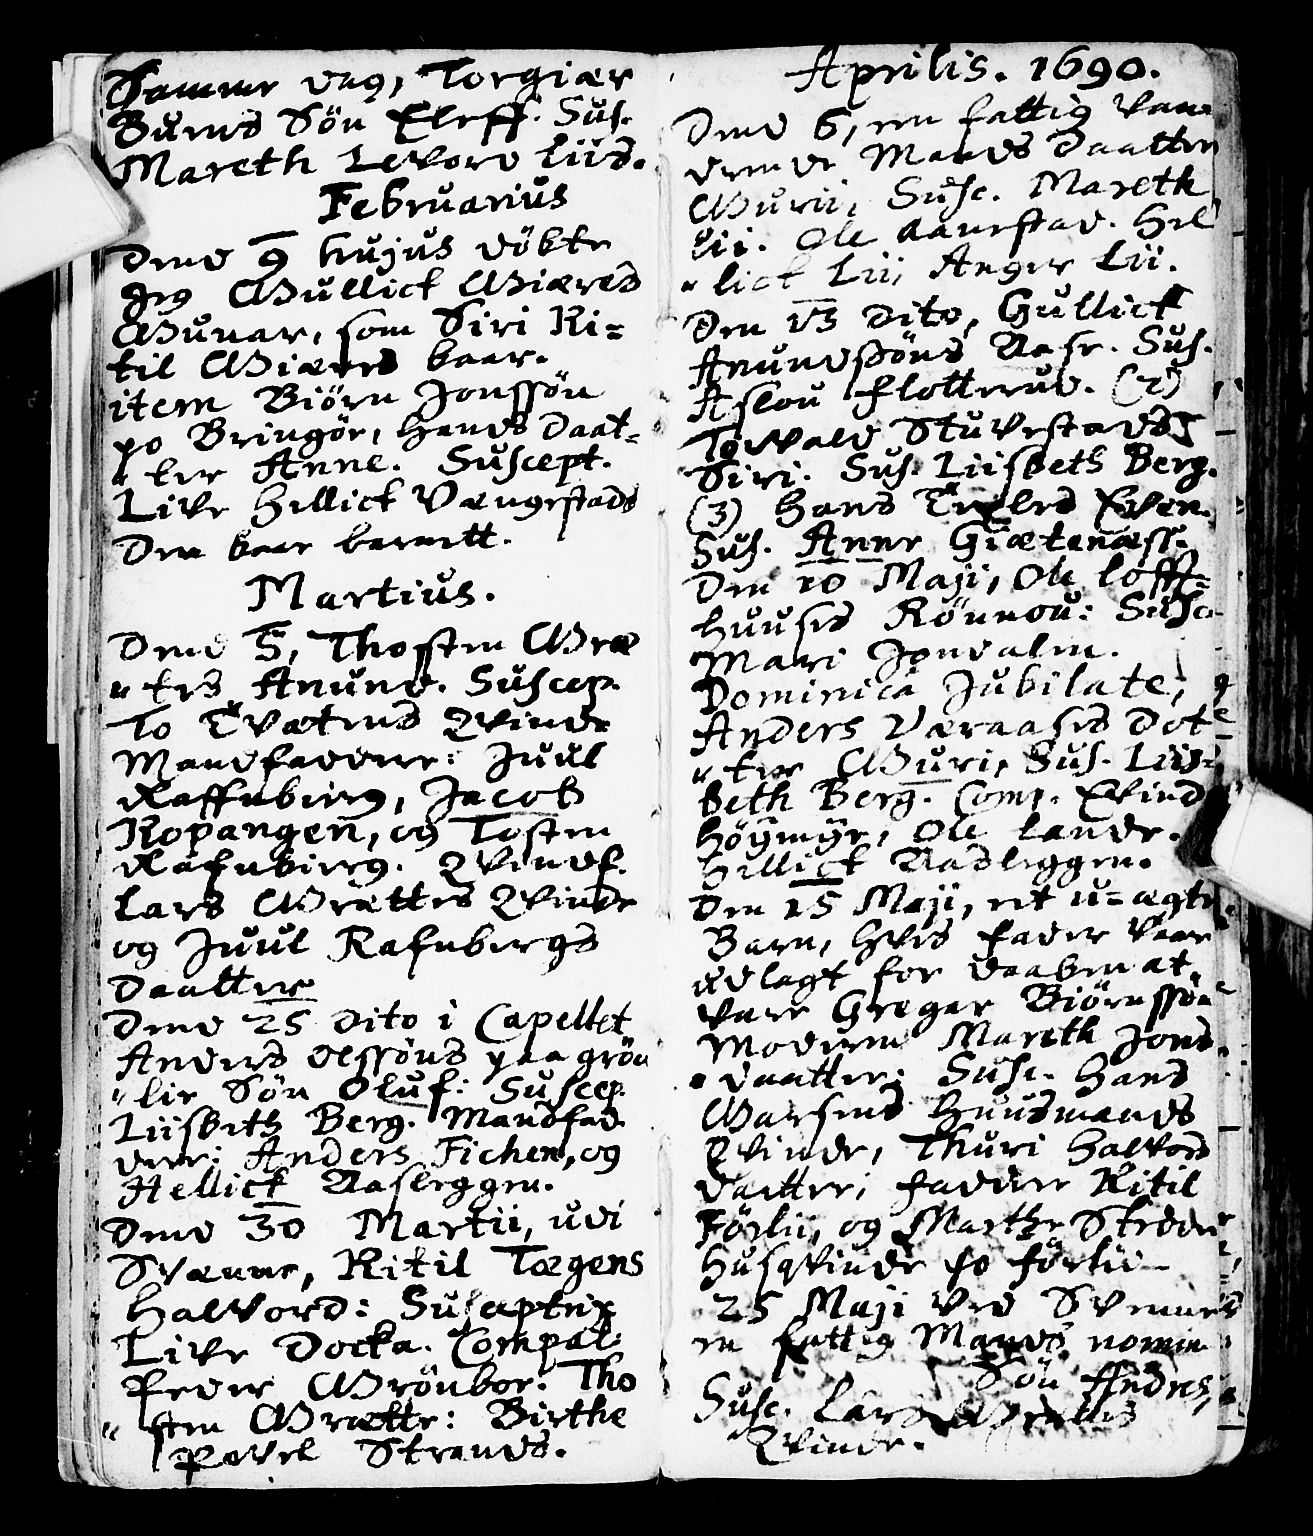 Samme dag, Torgiær
Buens Sön Eleff. Sus.
Mareth Levord Liis.
Februarius
Dend 9 hujus döbte
jeg Gullick Giæres
Gunar, som Siri Ki=
til Giæres baar.
item Biörn Jonssön
po Bringör, hands Daat=
ter Anne. Suscept.
Live Hellict Vængestads
Den baar barnett.
Martius.
Dend 5, Thosten Græ
ters Anund. Suscep.
To Tvætens Qvinde
Mandfaddere: Juul
Raffnbierg, Jacob
Kopangen, og Tosten
Rafnbierg. Qvindf.
Lars Grættes Qvinde
og Juul Rafnbergs
Daatter
Dend 25 Dito i Capellet
Anders Olssöns paa grön
lie Sön Oluf: Suscep.
Liisbeth Berg. Mandfad
dere: Anders Fichen, og
Hellick Aasleggen.
Dend 30 Martii, udi
Svenne, Kitil Tægens
Halvord: Susceptrix
Live Docka. Compat:
Peder Grönbor: Tho
sten Grætte: Birthe
Povel Strands.
Aprilis. 1690.
Dend 6, en fattig van
drende Mands Daatter
Gurii, Susc. Mareth
Lii. Ole Aanestad. Hel
lict Lii, Anger Lii.
Den 13 Dito, Gullict
Anundssöns Aase. Sus.
Aslou Flotterud. (2)
Torvald Stuvestads
Siri. Sus. Liisbeth Berg.
(3) Hans Even.
Sus. Anne Giætenæss.
Den 10 Maji, Ole Lofft=
huuses Rönnou: Susc.
Mari Jondalen.
Dominica Jubilate,
Anders Væraases Dot
ter Guri, Sus. Liis
beth Berg. Comp. Evind
Höymyr, Ole Lande.
Hellict Aasleggen.
Den 15 Maji, eet u=ægte
Barn, hvis fader vaar
udlagt for daaben at
vare Gregar Biörnssön
Moderen Mareth Jons
daatter: Susc. Hans
Garsens huusmands
Qvinde, Thuri Halvors
daatter, faddere Kitil
Förlii, og Marthe Ströen
husqvinde po Förlii
25 Maji ved Svennes
en fattig Mands nomin
Sön Andres,
Susc. Lars Grættes
Qvinde.